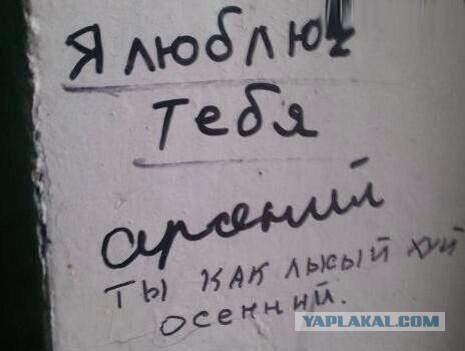 Я люблю
тебя
арсений
ты как лысый хуй
осенний.
YAPLAKAL.COM